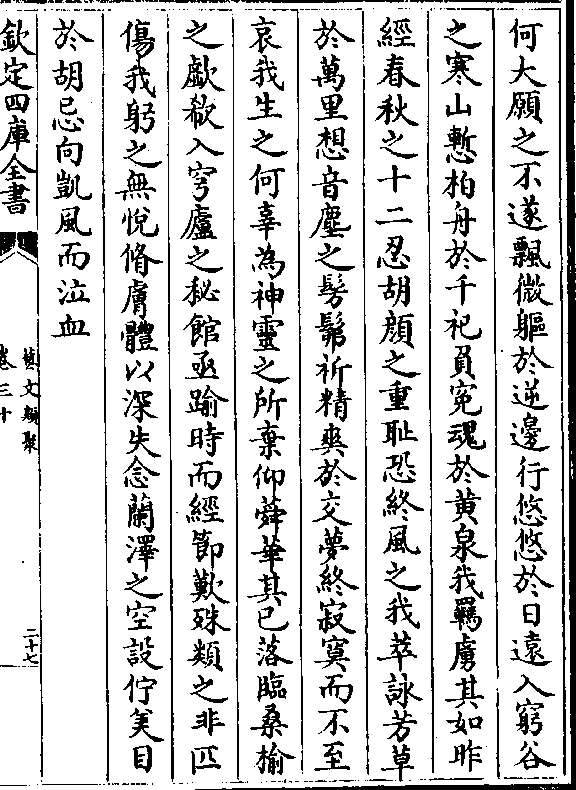 何大願之不遂飄微軀於逆邊行悠悠於日遠入窮谷
之寒山慙柏舟於千祀負寃魂於黄泉我羈虜其如昨
經春秋之十二忍胡顔之重恥恐終風之我萃詠芳草
於萬里想音塵之髣髴祈精爽於交夢終寂寞而不至
哀我生之何辜為神靈之所棄仰蕣華其已落臨桑榆
之歔欷入穹廬之秘館亟踰時而經節歎殊類之非匹
傷我躬之無悅脩膚體以深失念蘭澤之空設佇美目
於胡忌向凱風而泣血
欽定四庫全書
藝文類聚
卷三十
二十七